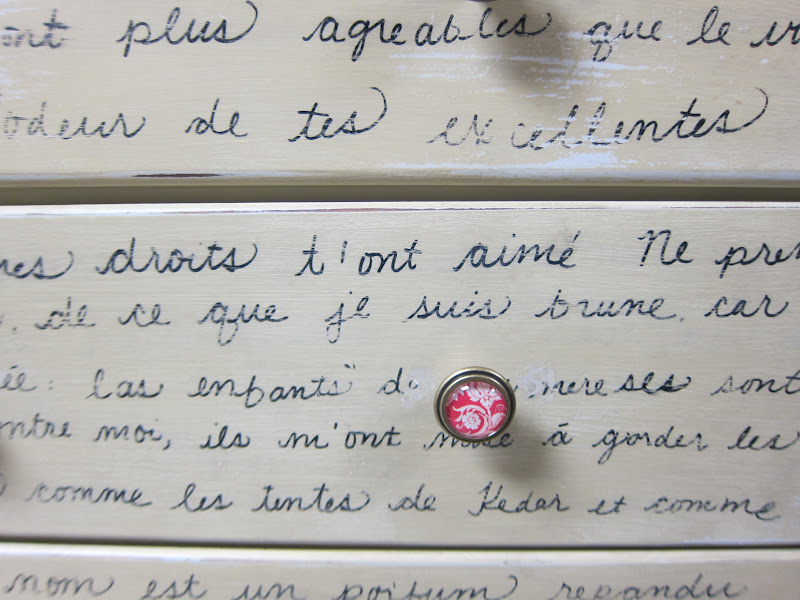 ont plus agreables que le
odeur de tes excellentes
droits t'ont aimé Ne
de ce que je suis brune, car
ée: las enfants sont
moi, ils m'ont à gorder les
comme les tentes de Kedar et comme
nom est un poitum repandu